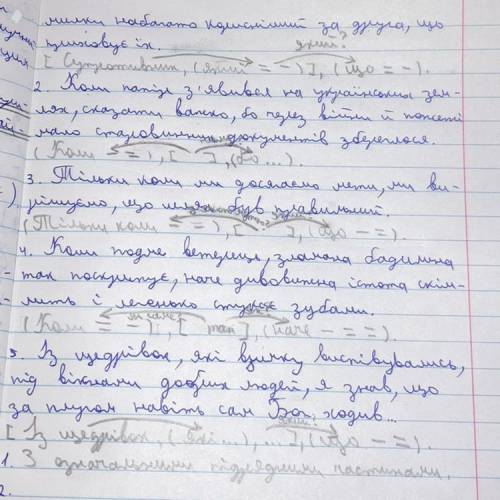 милки набагато корисніший за друга, що
приховує їх.
який?
[ Супротивник, (який = –) ], (що = –).
2. Коли папір з'явився на українських зем-
лях, сказати важко, бо через війни й пожежі
мало старовинних документів збереглося.
(Коли = –), [ ], (бо ...).
3. Тільки коли ми досягаємо мети, ми ви-
рішуємо, що шлях був правильний.
(Тільки коли – =), [ – = ], (що – =).
4. Коли подме ветерець, зламана бадилина
так поскрипує, наче дивовижна істота скім-
лить і легенько стукає зубами.
(Коли = –), [ так ], (наче – = =).
5. Із щедрівок, які взимку виспівувались,
під вікнами добрих людей, я знав, що
за плугом навіть сам Бог ходив...
який?
[ Із щедрівок, (які ...), ... ], (що – =).
1. З означальними підрядними частинами.
2.